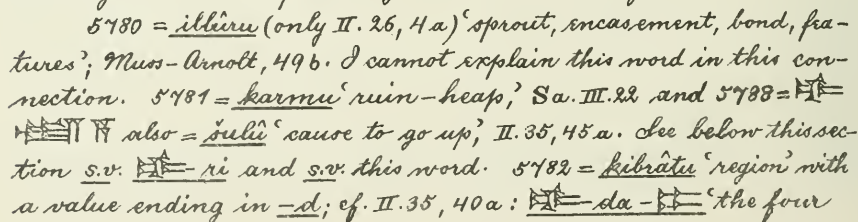 5780 = illûru (only II. 26, 4a) ‘sprout, encasement, bond, fea-
tures’; Muss-Arnolt, 49b. I cannot explain this word in this con-
nection. 5781 = karmu ‘ruin-heap,’ Sa. III. 22 and 5788 =
also = šulû ‘cause to go up,’ II. 35, 45a. See below this sec-
tion s.v. -ri and s.v. this word. 5782 = kibrâtu ‘region’ with
a value ending in -d; cf. II. 35, 40a : -da- ‘the four